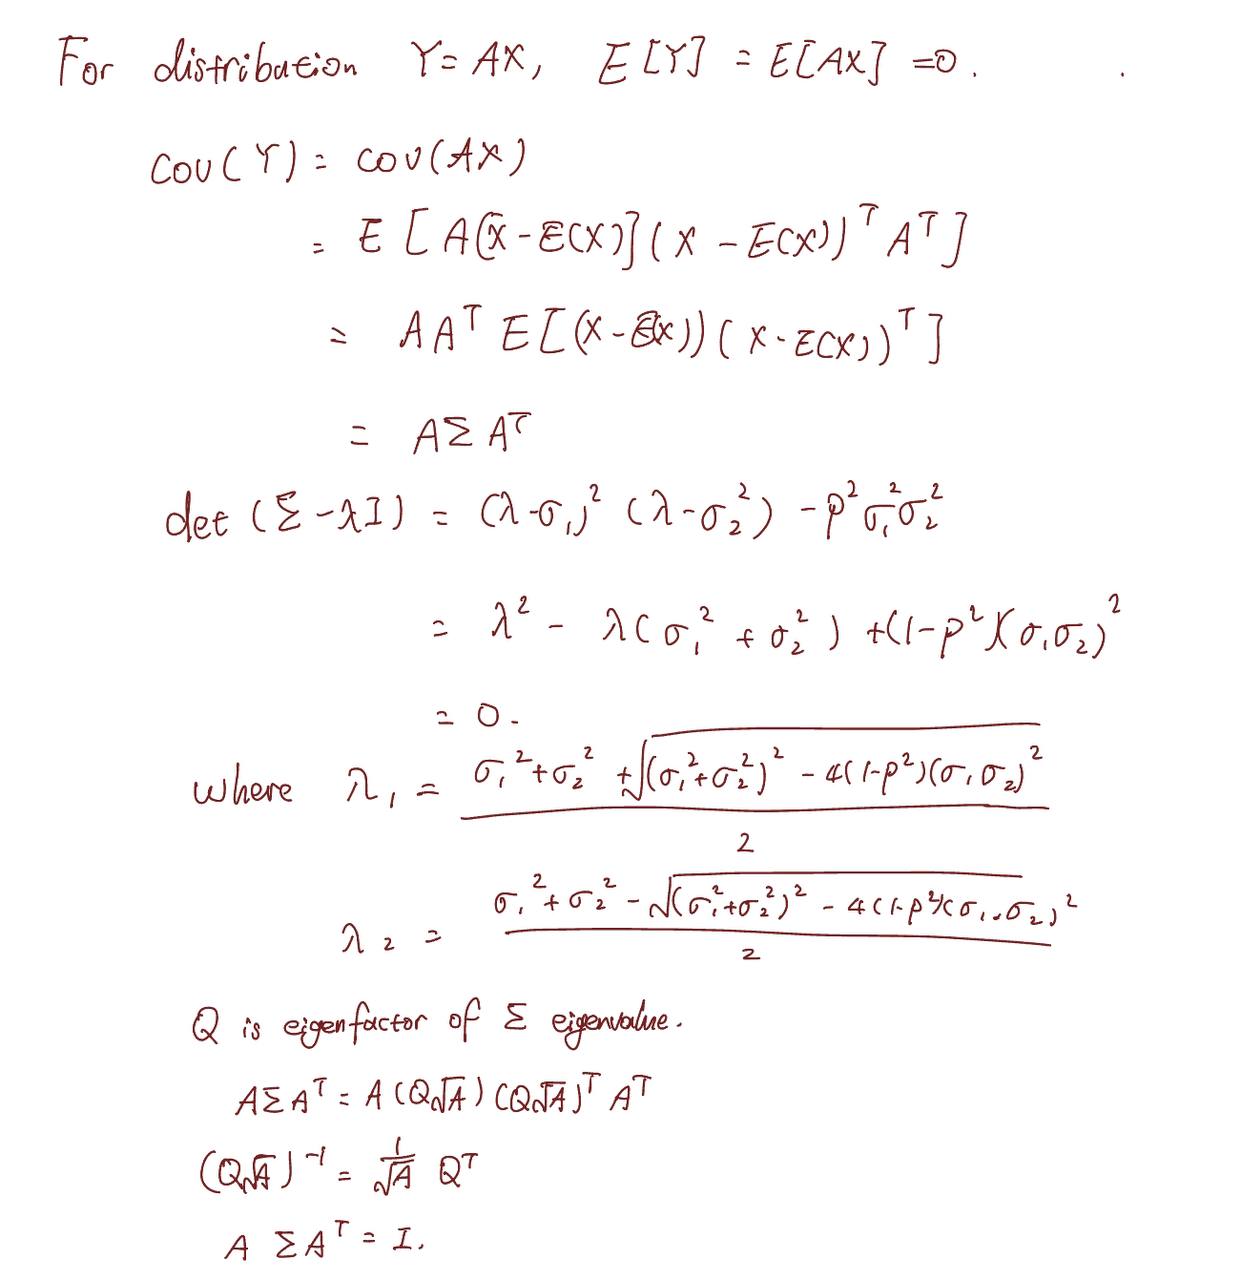 For distribution Y = AX, E[Y] = E[AX] = 0.
COV(Y) = COV(AX)
= E[A(X-E(X)](X-E(X))ᵀAᵀ]
= AAᵀE[(X-E(X))(X-E(X))ᵀ]
= AΣAᵀ
det(Σ-λI) = (λ-σ₁)²(λ-σ₂²) - ρ²σ₁²σ₂²
= λ² - λ(σ₁² + σ₂²) + (1-ρ²)(σ₁σ₂)²
= 0.
where λ₁ = (σ₁²+σ₂² + √((σ₁²+σ₂²)² - 4(1-ρ²)(σ₁σ₂)²)) / 2
λ₂ = (σ₁²+σ₂² - √((σ₁²+σ₂²)² - 4(1-ρ²)(σ₁.σ₂)²)) / 2
Q is eigenfactor of Σ eigenvalue.
AΣAᵀ = A(Q√A)(Q√A)ᵀAᵀ
(Q√A)⁻¹ = 1/√A Qᵀ
AΣAᵀ = I.